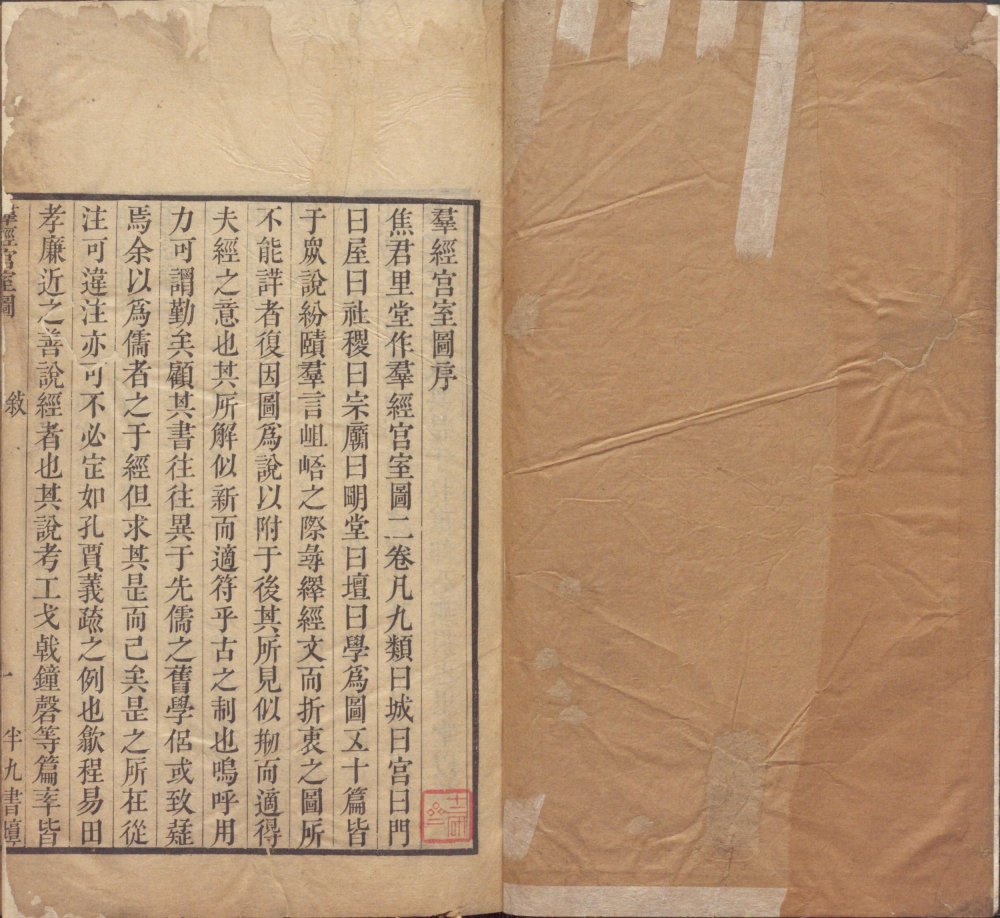 羣經宫室圖序
焦君里堂作羣經宫室圖二卷凡九類曰城曰宫曰門
曰屋曰社稷曰宗廟曰朙堂曰壇曰學爲圖五十篇皆
于衆說紛賾羣言岨峿之際尋繹經文而折衷之圖所
不能詳者復因圖爲說以附于後其所見似刱而適得
夫經之意也其所解似新而適符乎古之制也嗚呼用
力可謂勤矣顧其書往往異于先儒之舊學侣或致疑
焉余以爲儒者之于經但求其是而已矣是之所在從
注可違注亦可不必定如孔賈義疏之例也歙程易田
孝廉近之善說經者也其說考工戈戟鐘磬等篇率皆
羣經宫室圖
敘
一
半九書塾